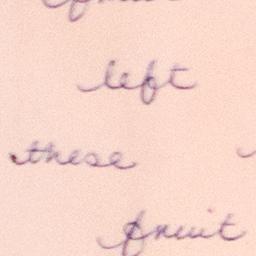 left
these
fruit